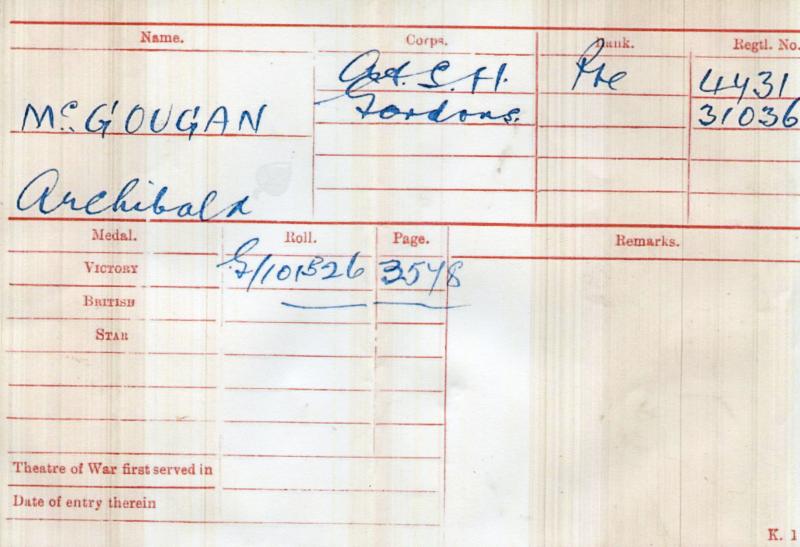 Name. Corps. Rank. Regtl. No.
A & S. H. Pte 4431
McGOUGAN Gordons. 31036
Archibald
Medal. Roll. Page. Remarks.
VICTORY G/101B26 3578
BRITISH
STAR
Theatre of War first served in
Date of entry therein
K. 1